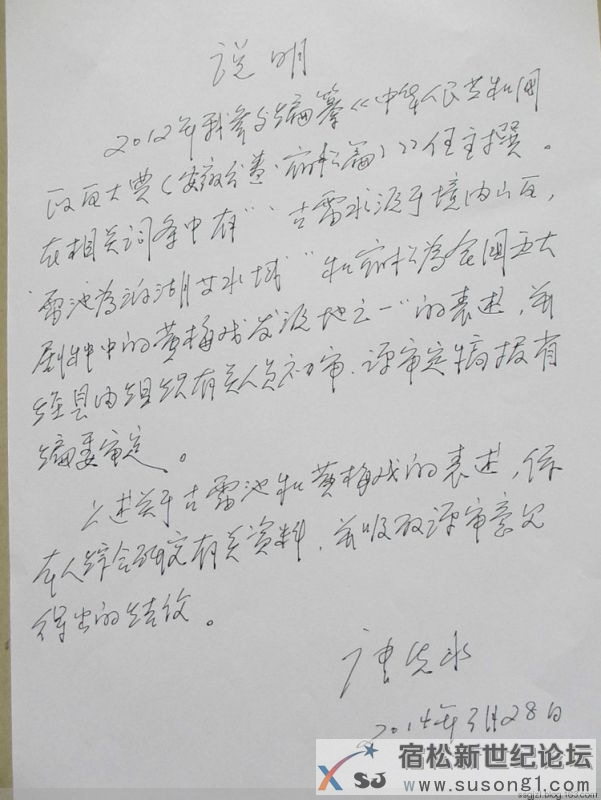 说明
2012年我参与编纂《中华人民共和国
政区大典(安徽分卷·宿松篇)》任主撰。
在相关词条中有"古雷水源于境内山区,
雷池为泊湖等水域"和宿松为全国五大
剧种中的黄梅戏发源地之一"的表述,并
经县内组织有关人员初审、评审定稿报省
编委审定。
上述关于古雷池和黄梅戏的表述,系
本人综合研究有关资料,并吸取评审意见
得出的结论。
唐先水
2014年3月28日
XSJ 宿松新世纪论坛
www.susong1.com
ssgjzl.blog.163.com